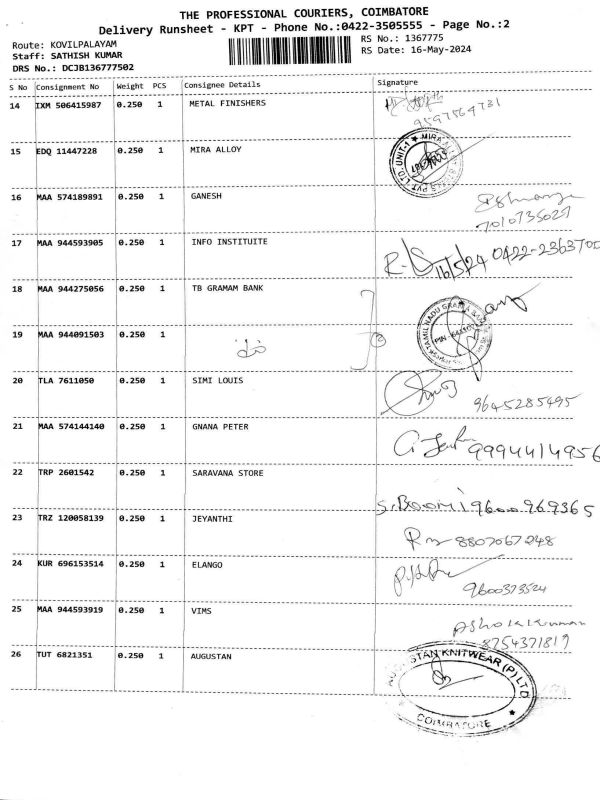 THE PROFESSIONAL COURIERS, COIMBATORE
Delivery Runsheet - KPT - Phone No.:0422-3505555 - Page No.:2
Route: KOVILPALAYAM
RS No.: 1367775
Staff: SATHISH KUMAR
RS Date: 16-May-2024
DRS No.: DCJB136777502
S No Consignment No Weight PCS Consignee Details Signature
14 IXM 506415987 0.250 1 METAL FINISHERS
9597564731
15 EDQ 11447228 0.250 1 MIRA ALLOY
16 MAA 574189891 0.250 1 GANESH
7010735029
17 MAA 944593905 0.250 1 INFO INSTITUITE
16/5/24 0422-2363700
18 MAA 944275056 0.250 1 TB GRAMAM BANK
19 MAA 944091503 0.250 1
20 TLA 7611050 0.250 1 SIMI LOUIS
9645285495
21 MAA 574144140 0.250 1 GNANA PETER
9994414956
22 TRP 2601542 0.250 1 SARAVANA STORE
S.Boomi 9600969365
23 TRZ 120058139 0.250 1 JEYANTHI
8807067248
24 KUR 696153514 0.250 1 ELANGO
9600373524
25 MAA 944593919 0.250 1 VIMS
Ashok Kumar
8754371819
26 TUT 6821351 0.250 1 AUGUSTAN
AUGUSTAN KNITWEAR (P) LTD
COIMBATORE